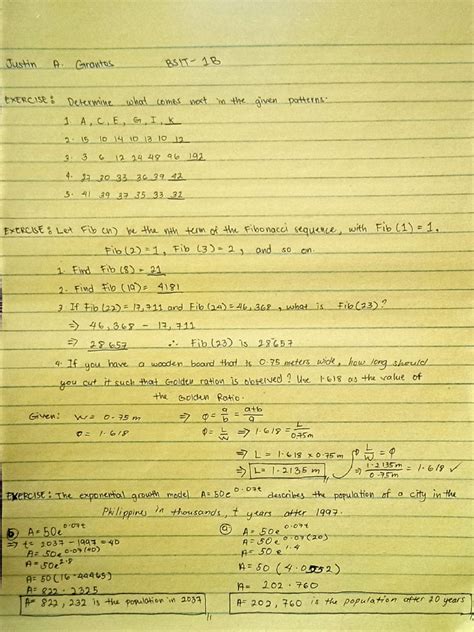 Justin A. Grantos BSIT - 1B
EXERCISE: Determine what comes next in the given patterns.
1. A, C, E, G, I, K
2. 15 10 14 10 13 10 12
3. 3 6 12 24 48 96 192
4. 27 30 33 36 39 42
5. 41 39 37 35 33 32
EXERCISE: Let Fib (n) be the nth term of the Fibonacci sequence, with Fib (1) = 1,
Fib (2) = 1, Fib (3) = 2, and so on.
1. Find Fib (8) = 21
2. Find Fib (19) = 4181
3. If Fib (22) = 17,711 and Fib (24) = 46,368, what is Fib (23)?
⇒ 46,368 - 17,711
⇒ 28657 ∴ Fib (23) is 28657
4. If you have a wooden board that is 0.75 meters wide, how long should
you cut it such that Golden ration is observed? Use 1.618 as the value of
the Golden Ratio.
Given: W = 0.75m ⇒ Φ = a/b = a+b/a
Φ = 1.618 Φ = L/W ⇒ 1.618 = L/0.75m
⇒ L = 1.618 x 0.75m Φ L/W = Φ
⇒ L = 1.2135m ⇒ 1.2135m/0.75m = 1.618 ✓
EXERCISE: The exponential growth model A = 50e^0.07t describes the population of a city in the
Philippines in thousands, t years after 1997.
b) A = 50e^0.07t a) A = 50e^0.07t
⇒ t = 2037 - 1997 = 40 A = 50e^0.07(20)
A = 50e^0.07(40) A = 50e^1.4
A = 50e^2.8 A = 50 (4.0552)
A = 50 (16.44465) A = 202.760
A = 822.2325
A = 822,232 is the population in 2037 A = 202,760 is the population after 20 years